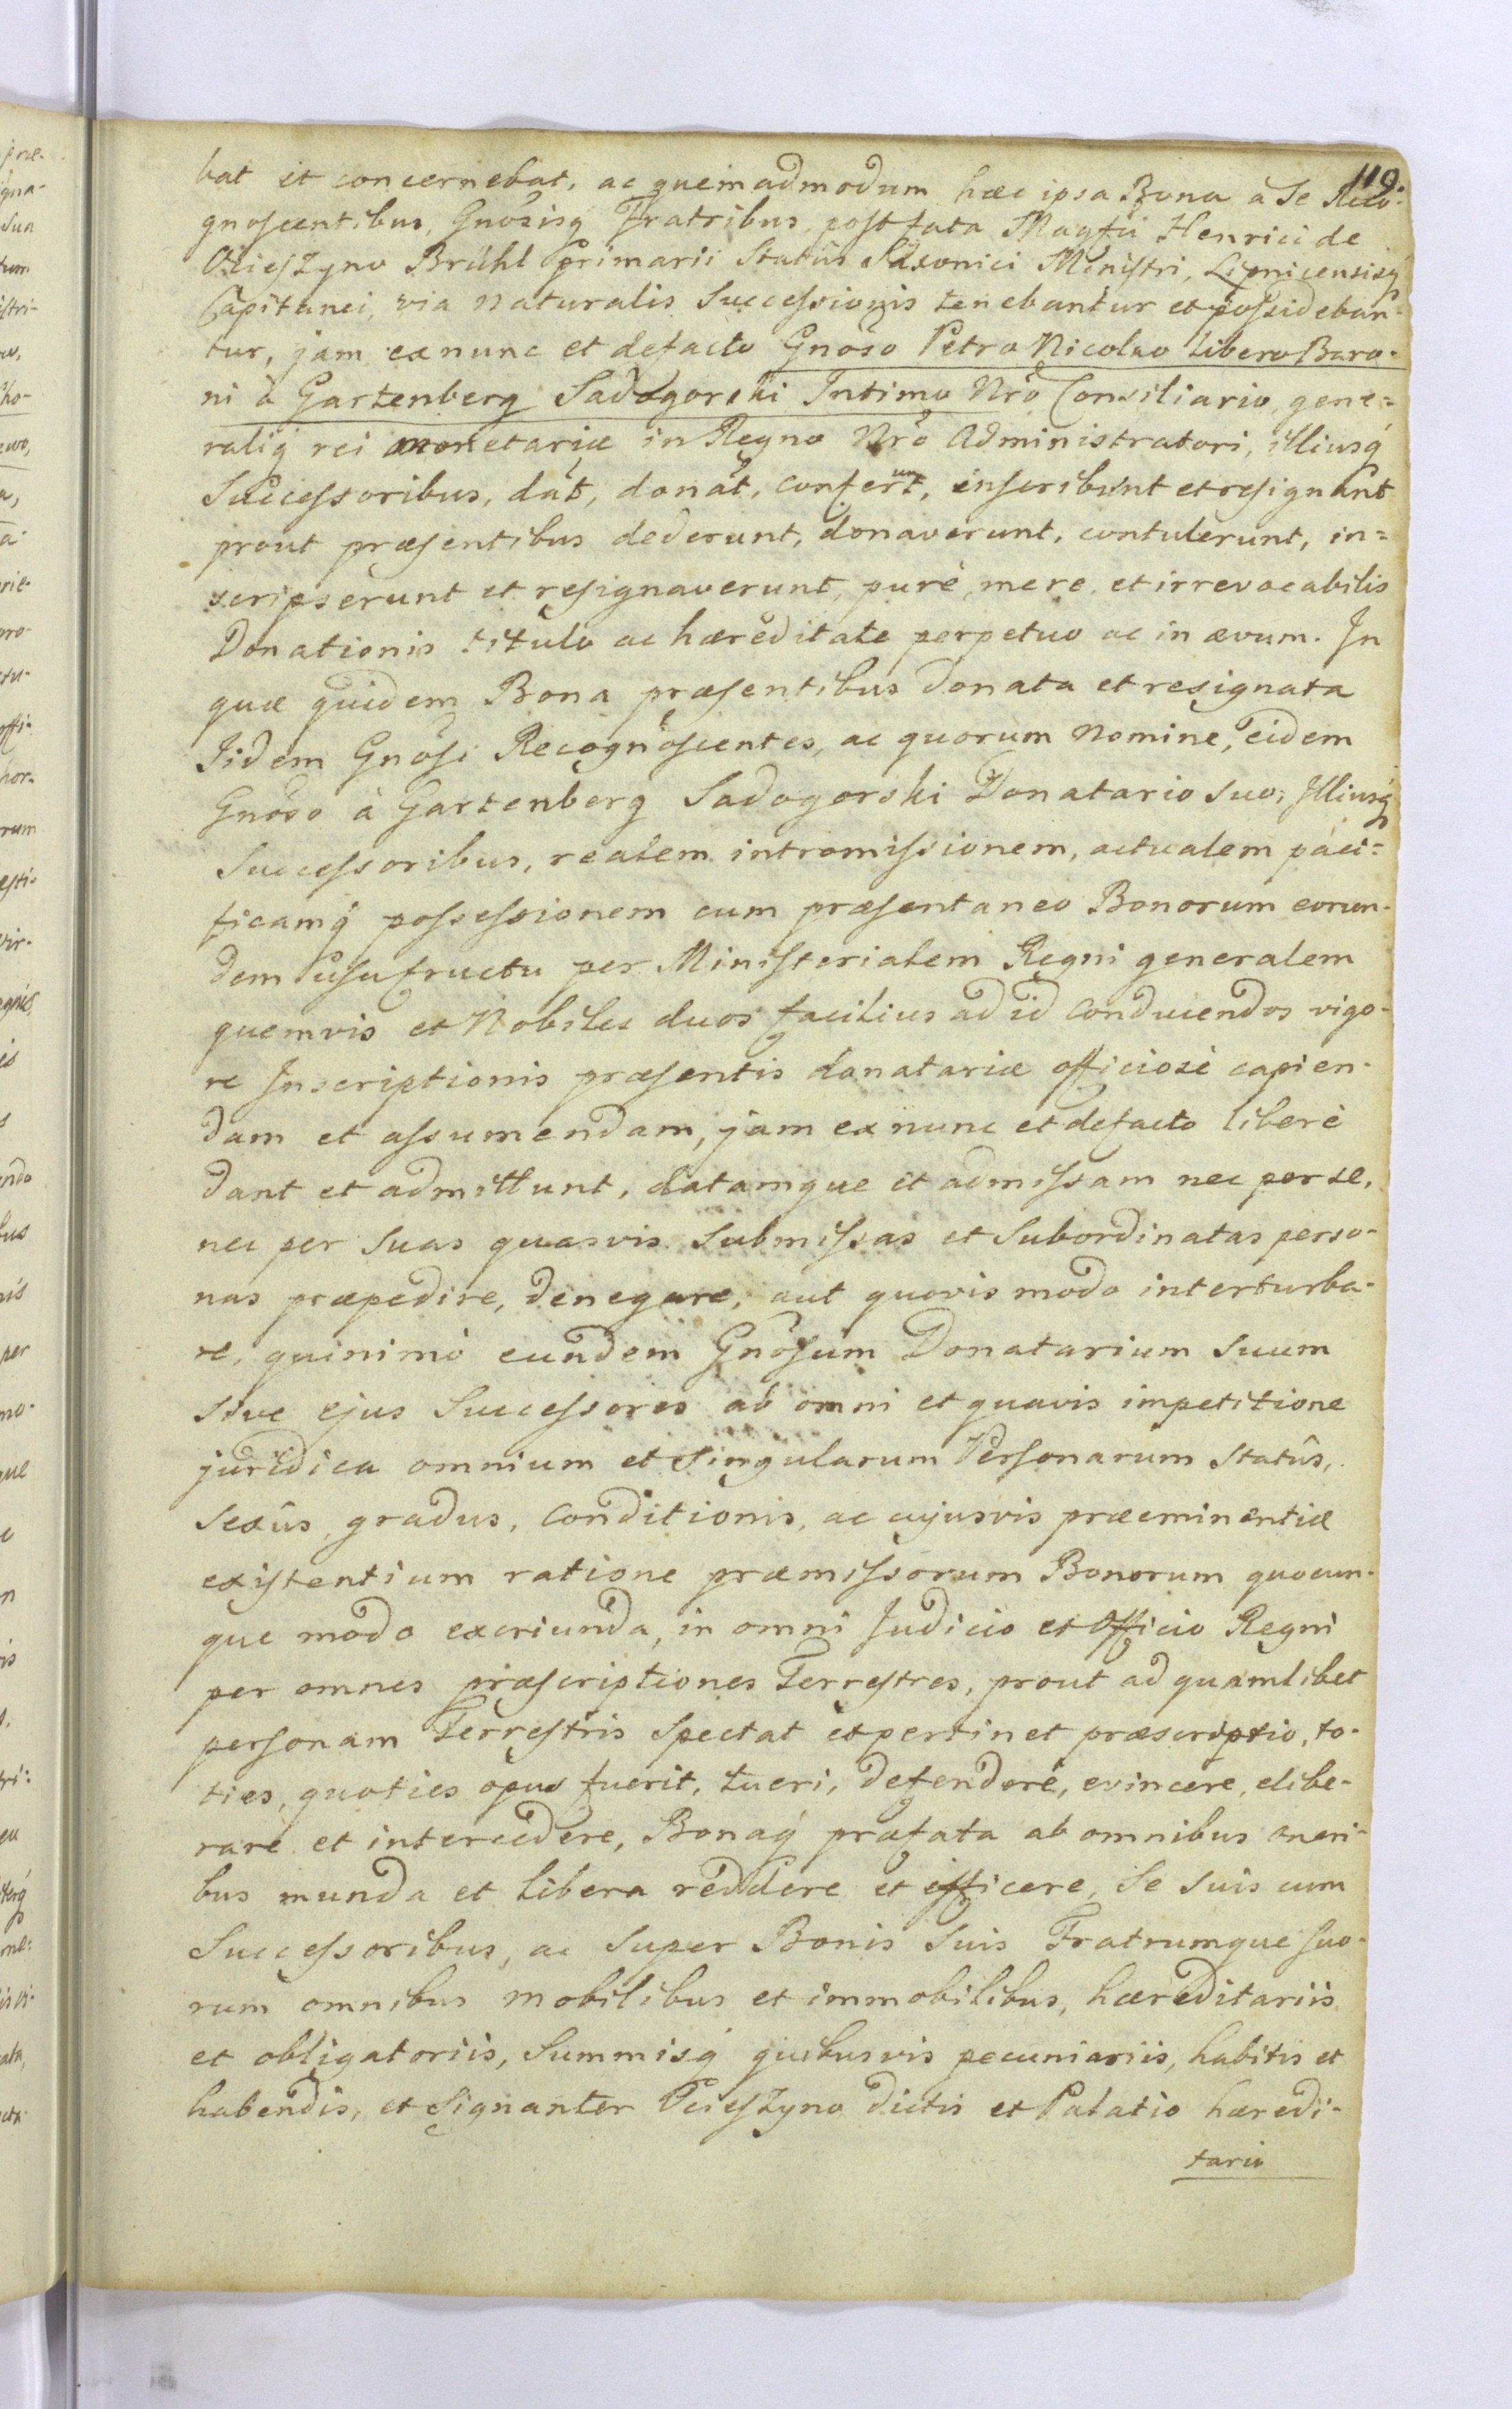 119.
bat et concernebat, ac quemadmodum hæc ipsa Bona a Se Reco-
gnoscentibus, Gnősisq́ Fratribus post fata Magfci Henrici de
Ocieszyno Brühl Primarii Statûs Saxonici Ministri, Lipnicensisq́
Capitanei, via naturalis Successionis tenebantur et possideban-
tur, jam ex nunc et defacto Gnőso Petro Nicolao Libero Baro-
ni à Gartenberg Sadogorski Intimo Nrő Consiliario, gene=
raliq́ rei monetariæ in Regno Nrő Administratori, illiusq́
Successoribus, dat, donat, conferunt, inscribunt et resignant
prout præsentibus dederunt, donaverunt, contulerunt, in=
scripserunt et resignaverunt, purè, mere, et irrevocabilis
Donationis titulo ac hæreditate perpetuo ac in ævum. In
quæ quidem Bona præsentibus donata et resignata
Iidem Gnősi Recognoscentes, ac quorum Nomine, eidem
Gnőso à Gartenberg Sadogorski Donatario suo, Illiusq́
Successoribus, realem intromissionem, actualem paci=
ficamq́ possessionem cum præsentaneo Bonorum eorun-
dem usufructu per Ministerialem Regni generalem
quemvis et Nobiles duos facilius ad id conducendos vigo-
re Inscriptionis præsentis donatariæ officiosè capien-
dam et assumendam, jam ex nunc et defacto liberè
dant et admittunt, datamque et admissam nec per se,
nec per suas quasvis submissas et subordinatas perso-
nas præpedire, denegare, aut quovis modo interturba-
re, quinimò eundem Gnősum Donatarium suum
sive ejus Successores ab omni et quavis impetitione
juridica omnium et singularum Personarum statûs,
sexûs, gradus, conditionis, ac cujusvis præeminentiæ
existentium ratione præmissorum Bonorum quocun-
que modo exoriunda, in omni Judicio et Officio Regni
per omnes præscriptiones Terrestres, prout ad quamlibet
personam Terrestris spectat et pertinet præscriptio, to-
ties, quoties opus fuerit, tueri, defendere, evincere, elibe-
rare et intercedere, Bonaq́ præfata ab omnibus oneri-
bus munda et libera reddere et efficere, Se suis cum
Successoribus, ac super Bonis suis Fratrumque suo-
rum omnibus mobilibus et immobilibus, hæreditariis
et obligatoriis, Summisq́ quibusvis pecuniariis, habitis et
habendis, et signanter Ocieszyno dictis et Palatio hæredi-
tario